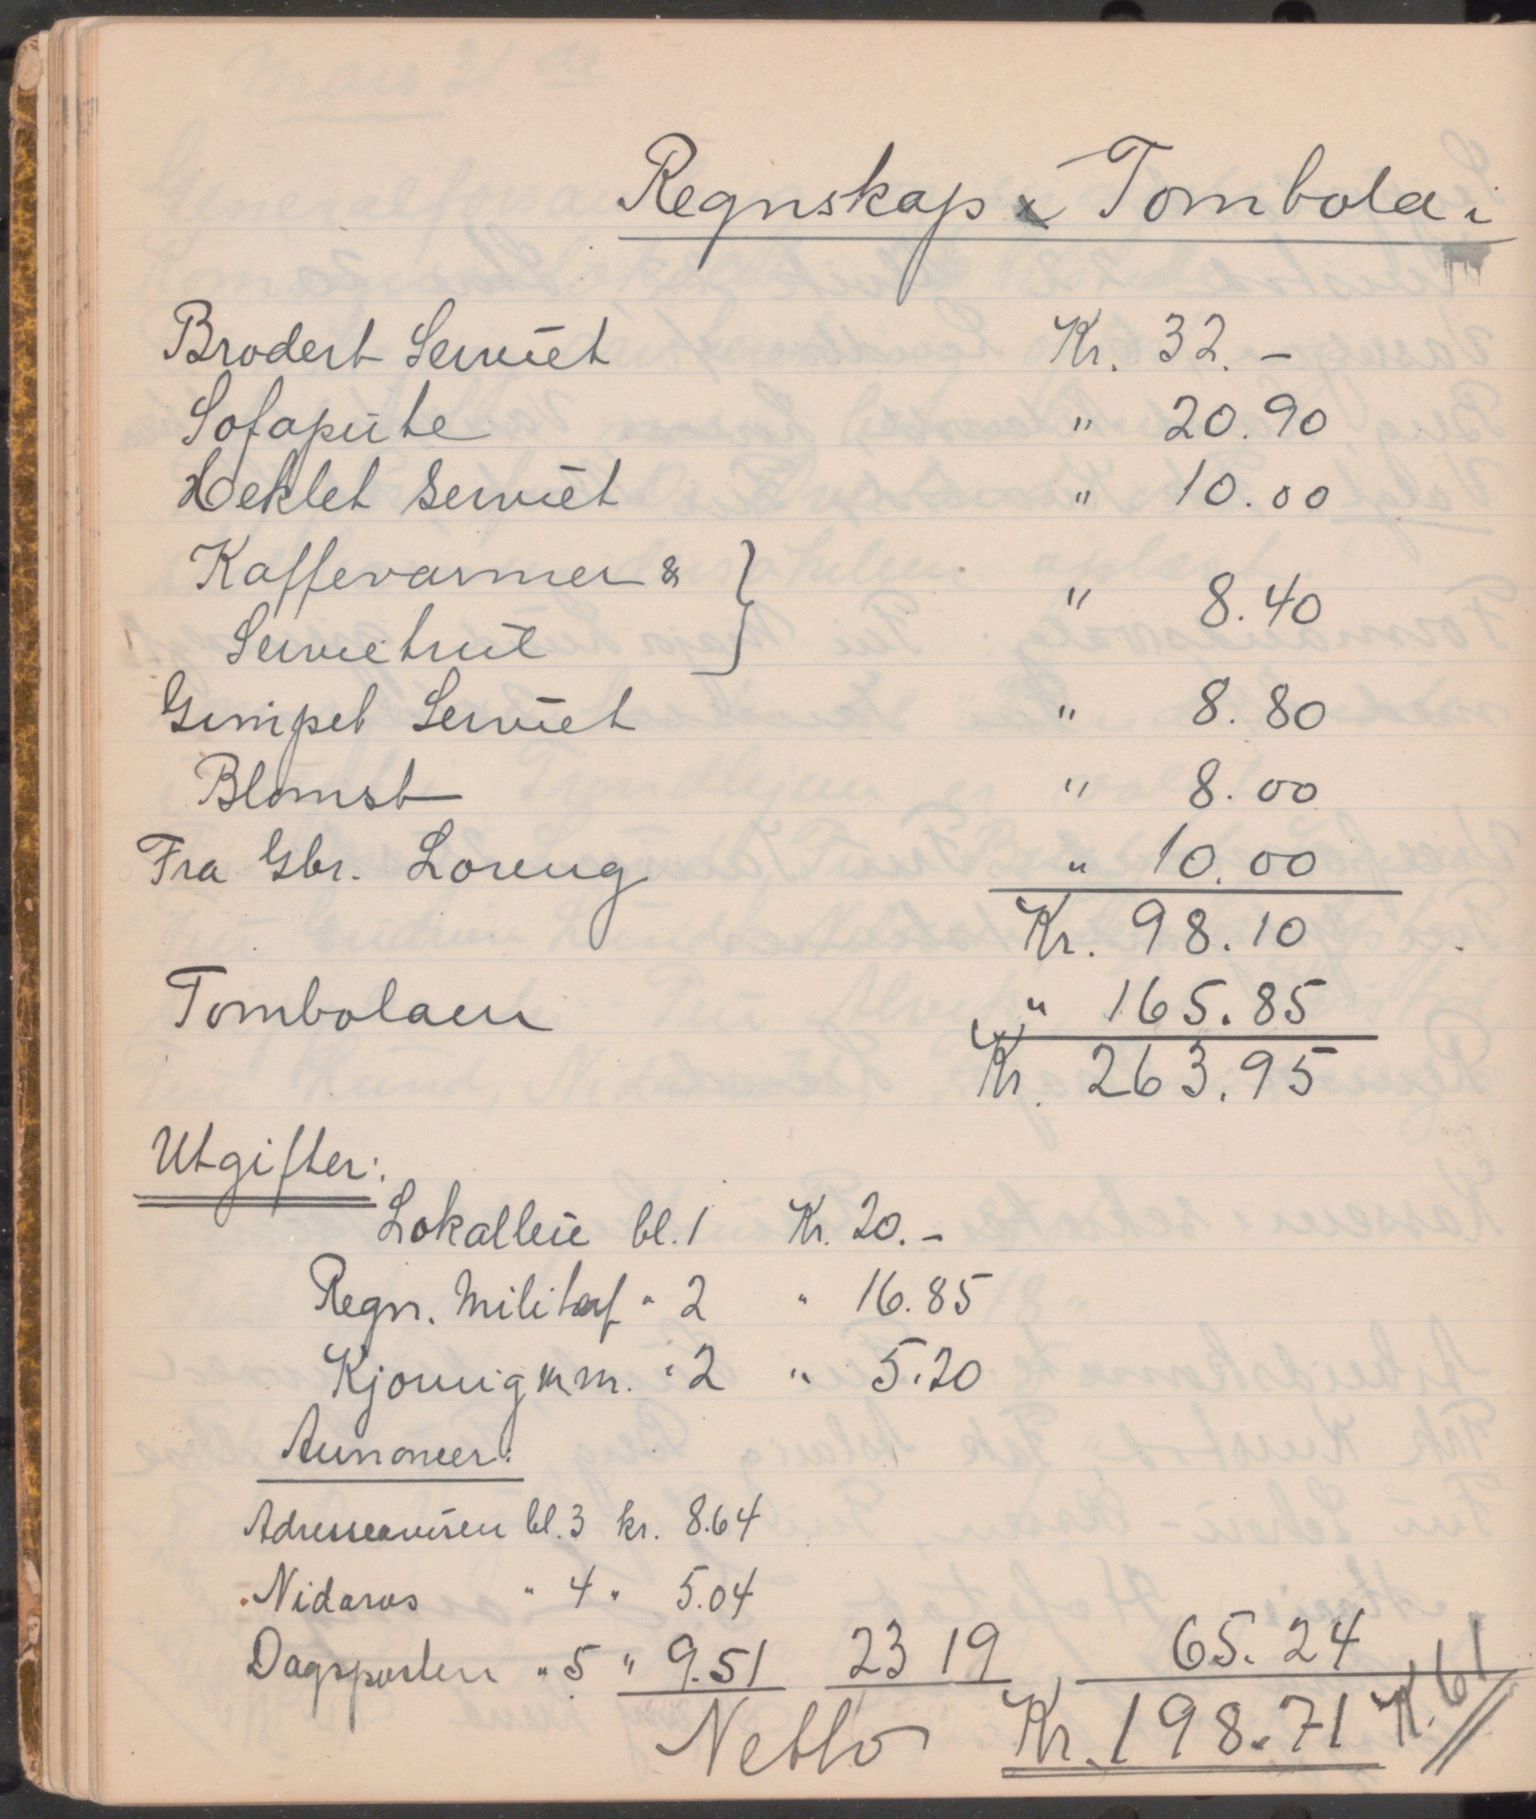 Regnskap x Tombola i
Brodert Serviet Kr. 32.–
Sofapute " 20.90
Heklet Serviet " 10.00
Kaffevarmer & } " 8.40
Servietrul
Gimpet Serviet " 8.80
Blomst " 8.00
Fra Gbr. Loreng " 10.00
Kr. 98.10
Tombolaen " 165.85
Kr. 263.95
Utgifter:
Lokalleie bl. 1 Kr. 20.–
Regn. " 2 " 16.85
m.m. " 2 " 5.20
Annoncer:
Adresseavisen bl. 3 kr. 8.64
Nidaros " 4 " 5.04
Dagsposten " 5 " 9.51 23 19 65.24
Netto Kr. 198.71 K. 61